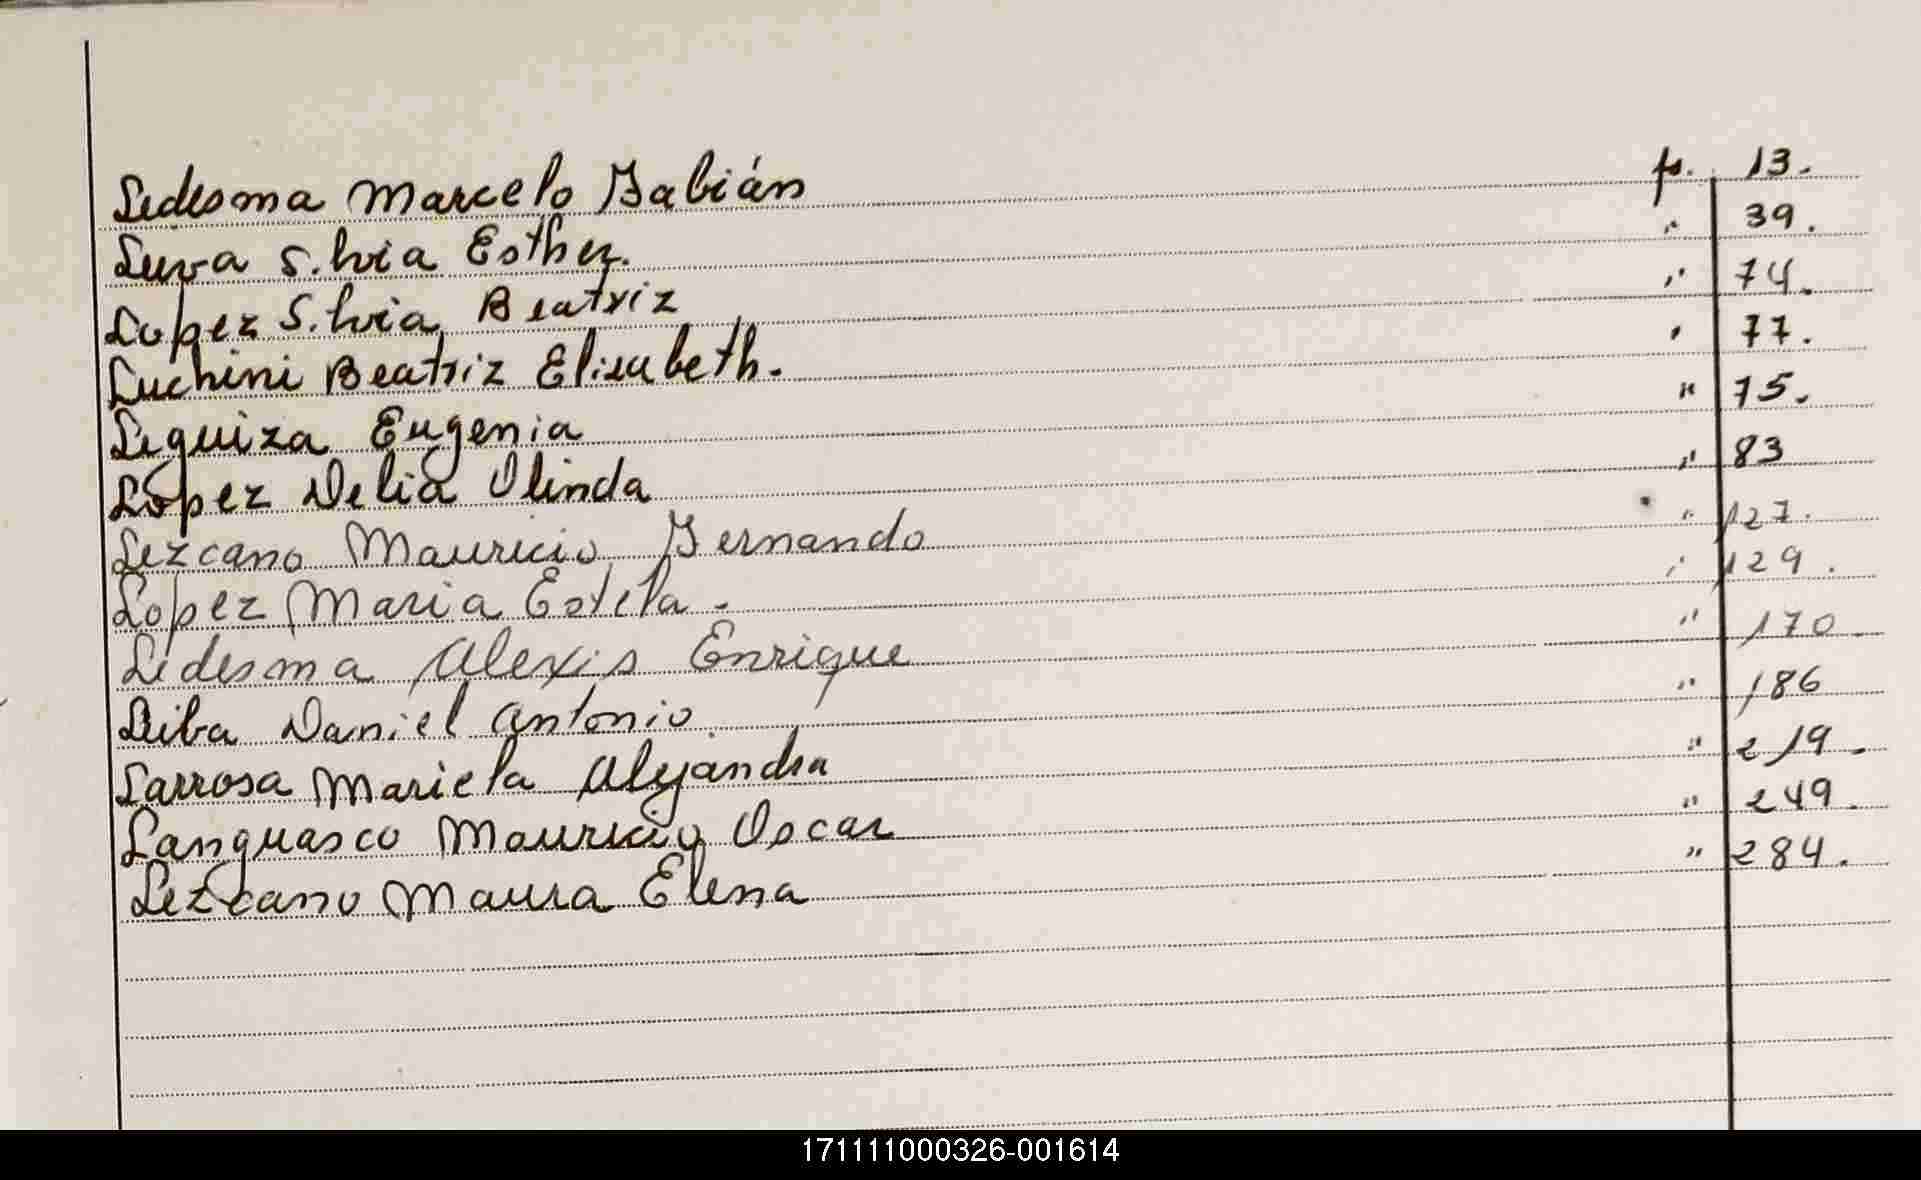 Ledesma Marcelo Fabián f. 13.
Leiva Silvia Esther. " 39.
Lopez Silvia Beatriz " 74.
Luchini Beatriz Elisabeth. " 77.
Leguiza Eugenia " 75.
López Delia Olinda " 83
Lezcano Mauricio Fernando " 127.
Lopez Maria Estela. " 129.
Ledesma Alexis Enrique " 170
Leiba Daniel Antonio " 186
Larrosa Mariela Alejandra " 219.
Languasco Mauricio Oscar " 249.
Lezcano Maura Elena " 284.
171111000326-001614